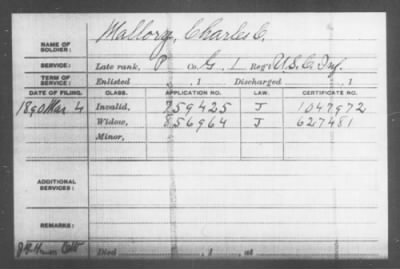 NAME OF SOLDIER: Mallory, Charles C.
SERVICE: Late rank, P Co. G, 1 Reg't U.S.C. Inf.
TERM OF SERVICE: Enlisted , 1 Discharged , 1
DATE OF FILING. CLASS. APPLICATION NO. LAW. CERTIFICATE NO.
1890 Mar. 4 Invalid, 759425 J 1047972
Widow, 856964 J 627481
Minor,
ADDITIONAL SERVICES:
REMARKS:
Died , 1 , at